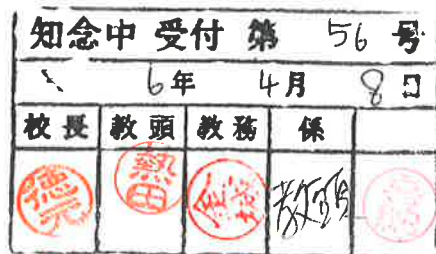 知念中 受付 第 56 号
6年 4月 8日
校長 教頭 教務 係
徳元 熱田 金城 教頭